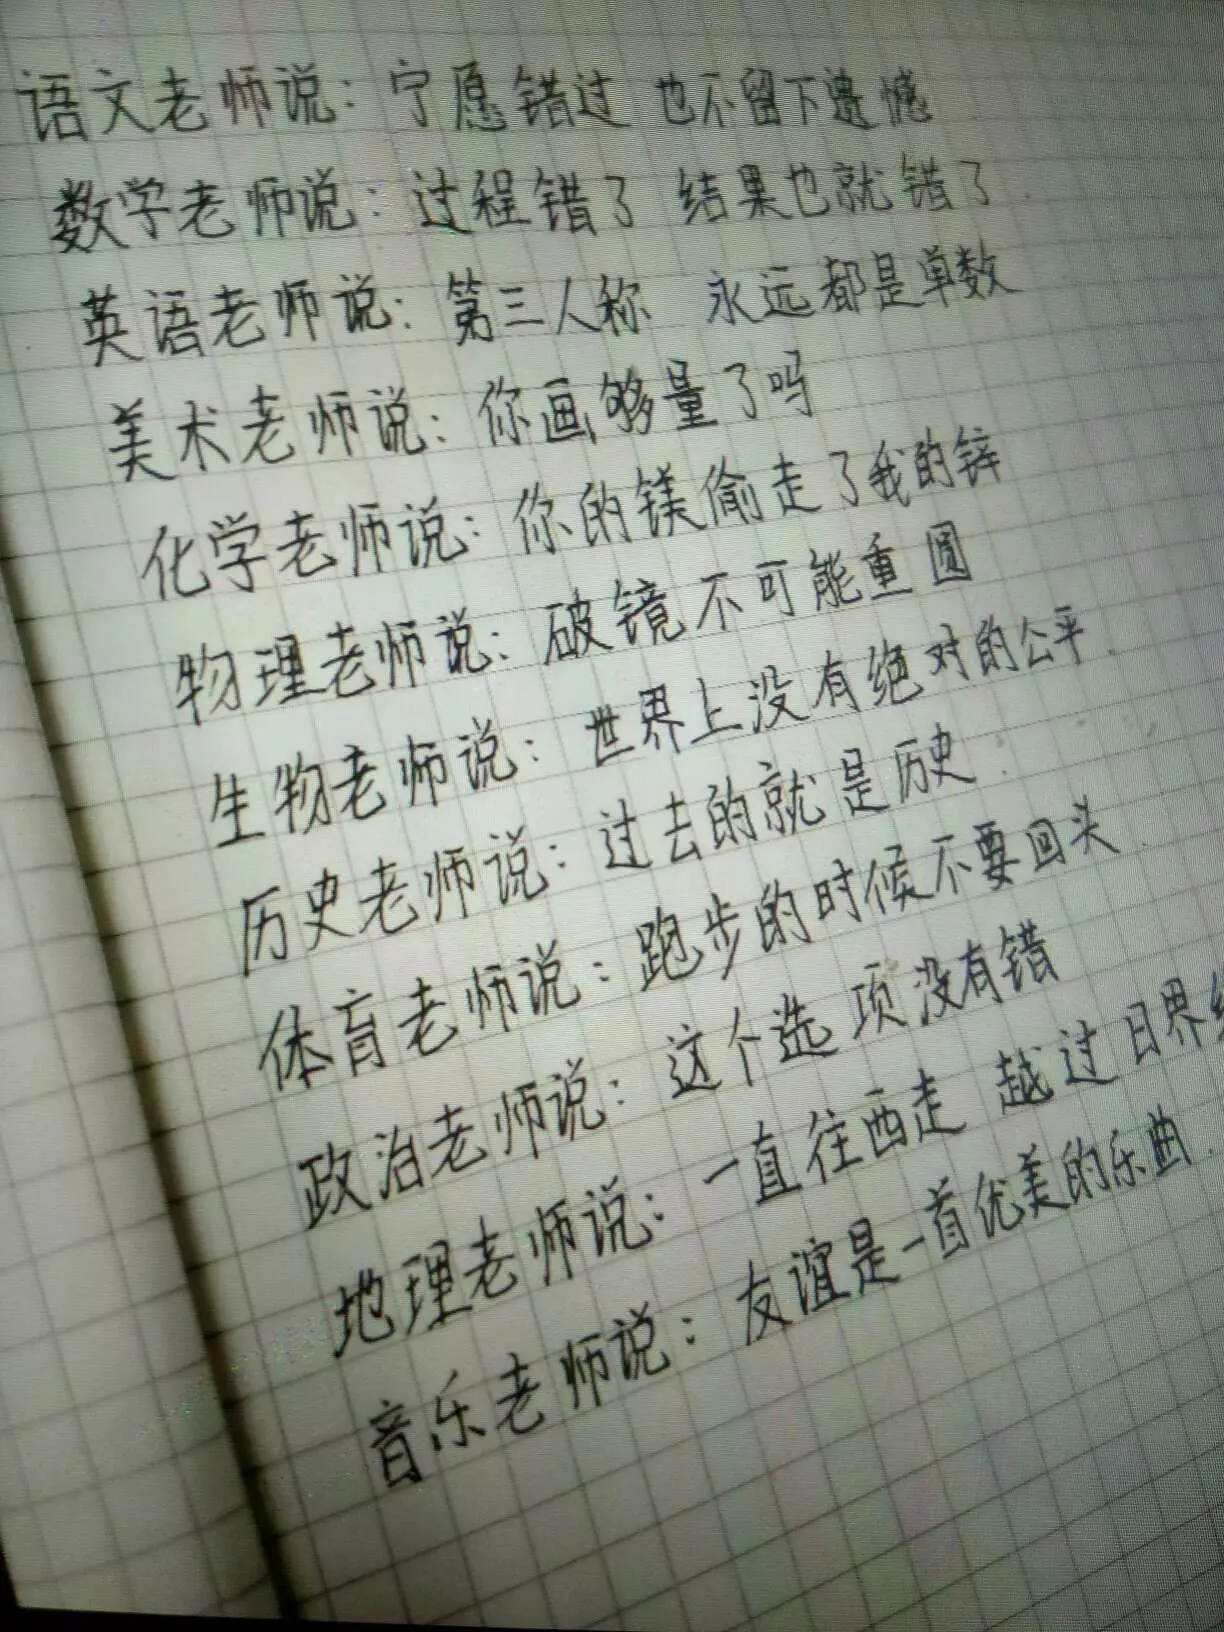 语文老师说：宁愿错过 也不留下遗憾
数学老师说：过程错了 结果也就错了.
英语老师说：第三人称 永远都是单数
美术老师说：你画够量了吗
化学老师说：你的镁偷走了我的锌
物理老师说：破镜不可能重圆
生物老师说：世界上没有绝对的公平.
历史老师说：过去的就是历史.
体育老师说：跑步的时候不要回头
政治老师说：这个选项没有错
地理老师说：一直往西走 越过日界
音乐老师说：友谊是一首优美的乐曲.